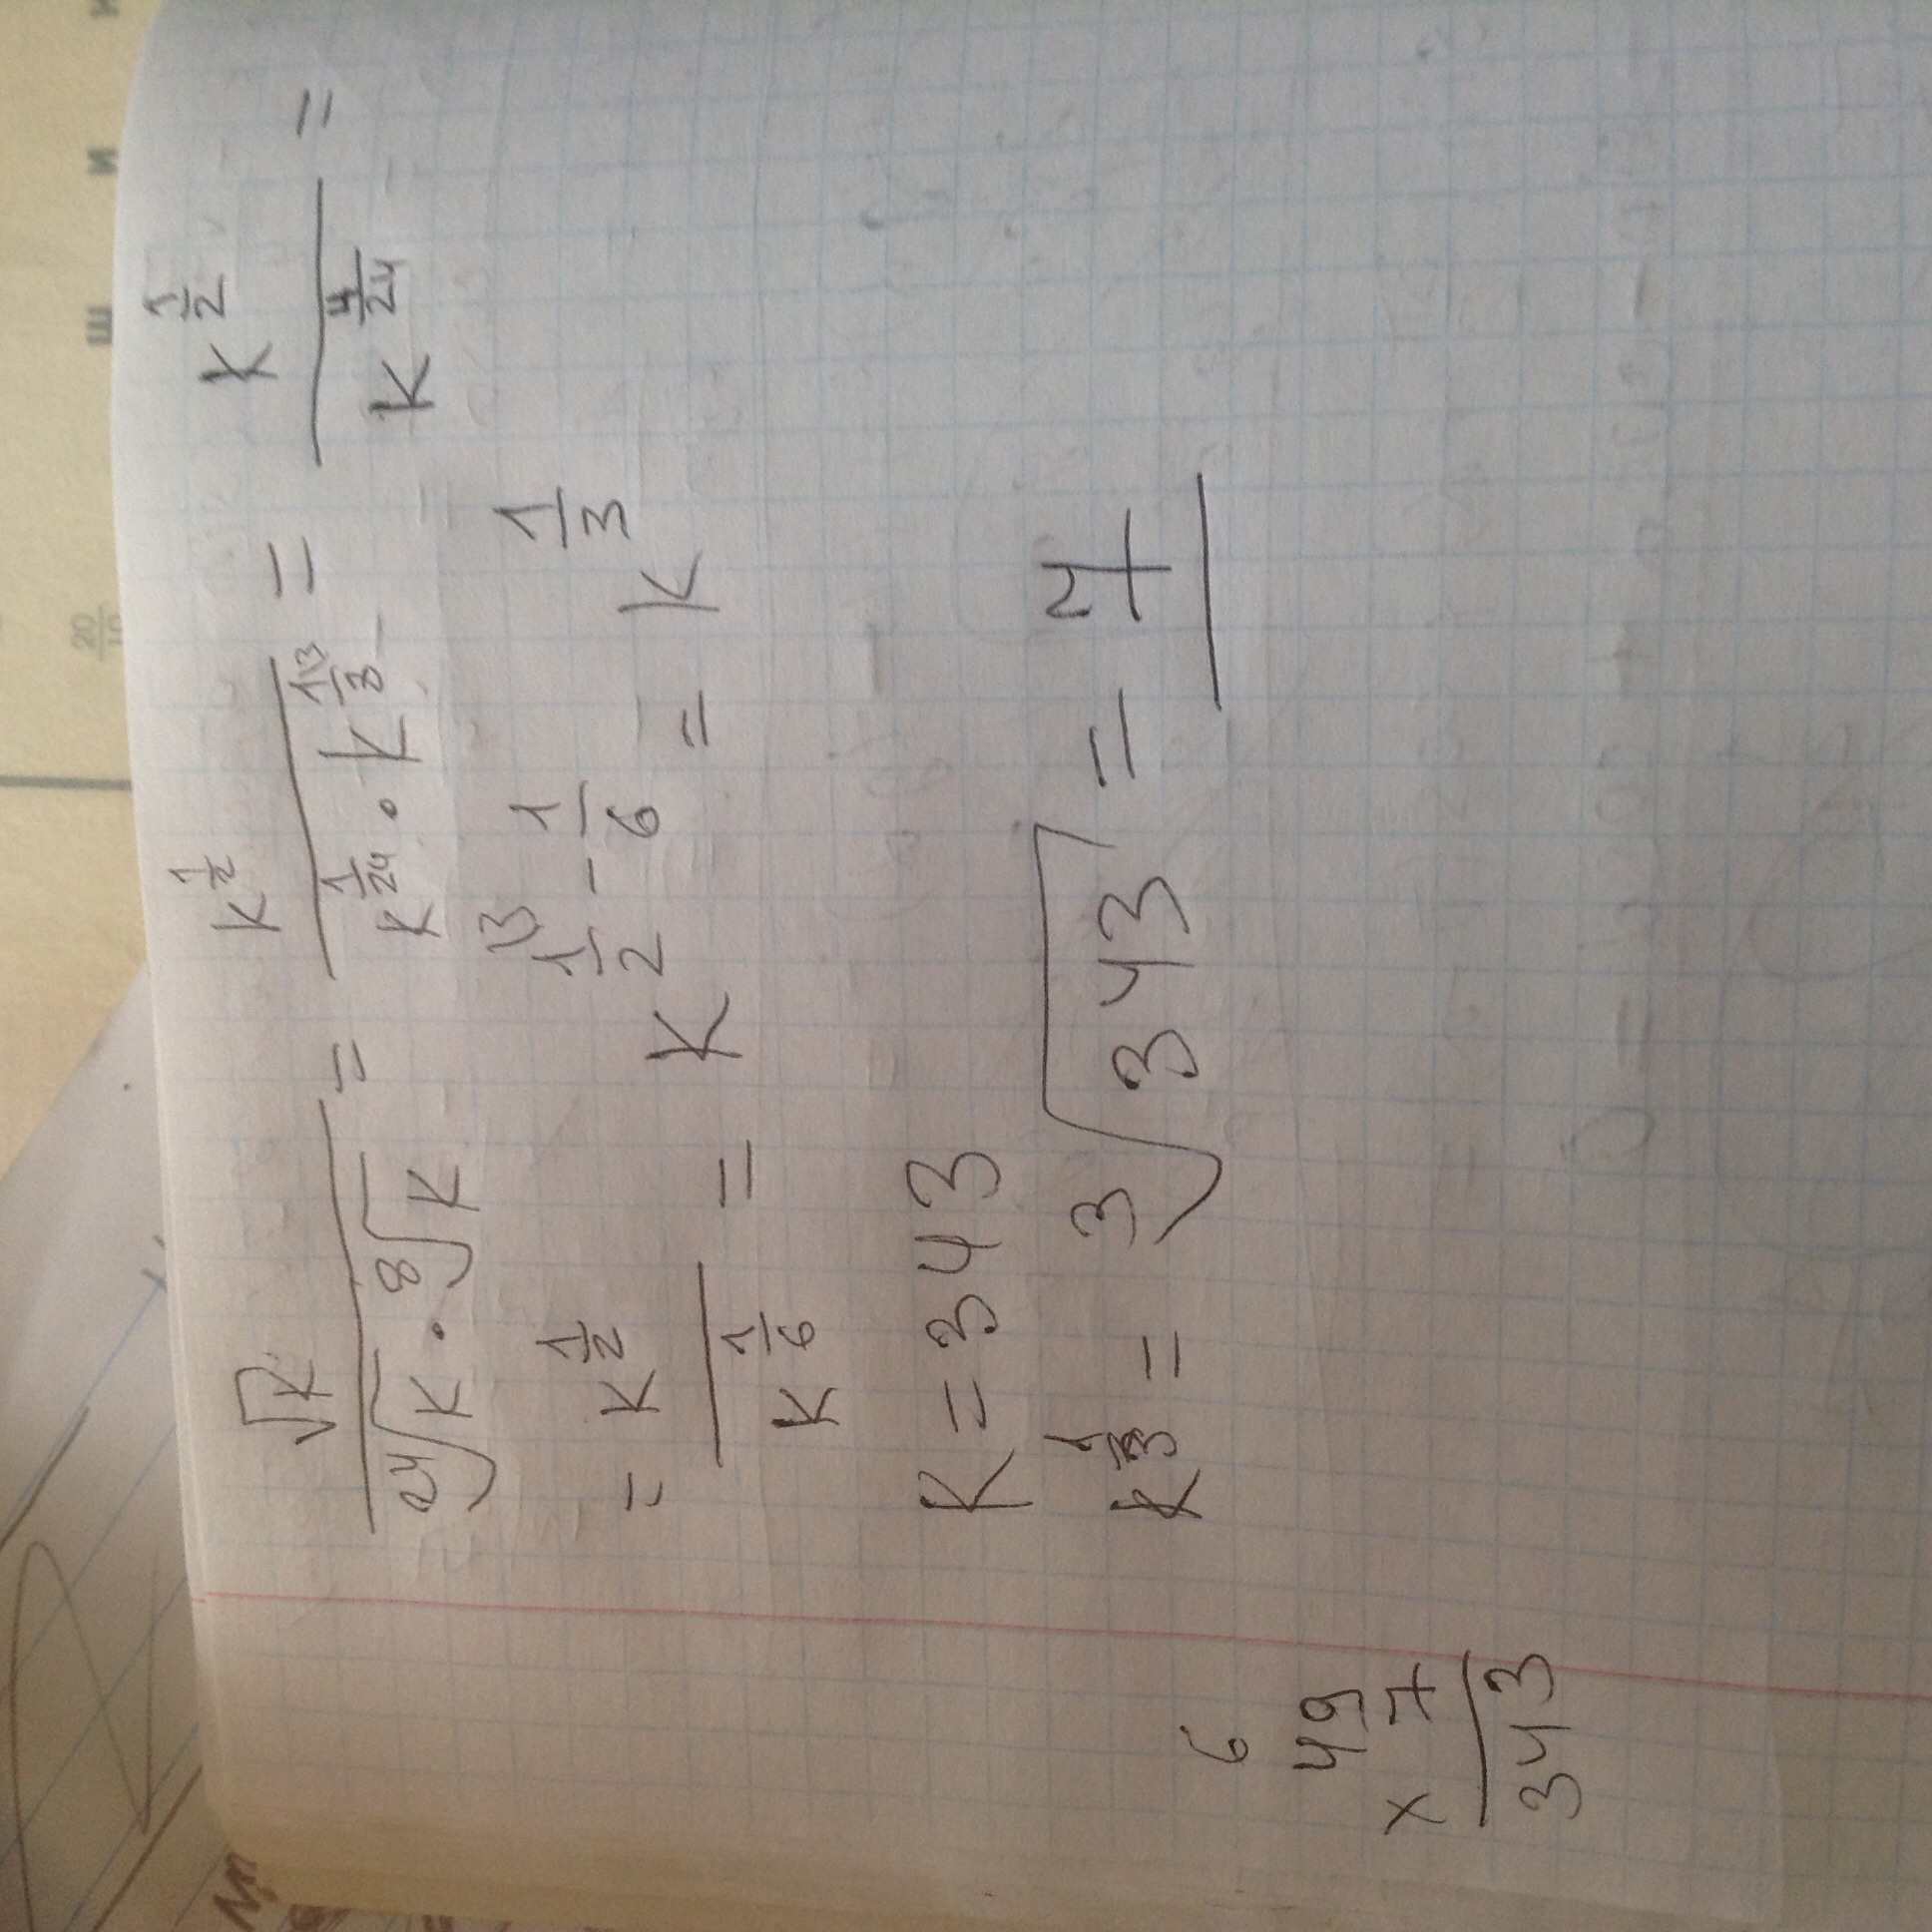 √k / (²⁴√k · ⁸√k) = k^(1/2) / (k^(1/24) · k^(1\3/8)) = k^(1/2) / k^(4/24) =
= k^(1/2) / k^(1/6) = k^(1\3/2 - 1/6) = k^(1/3)
k = 343
k^(1/3) = ³√343 = 7
6
49
× 7
343
ш и
20